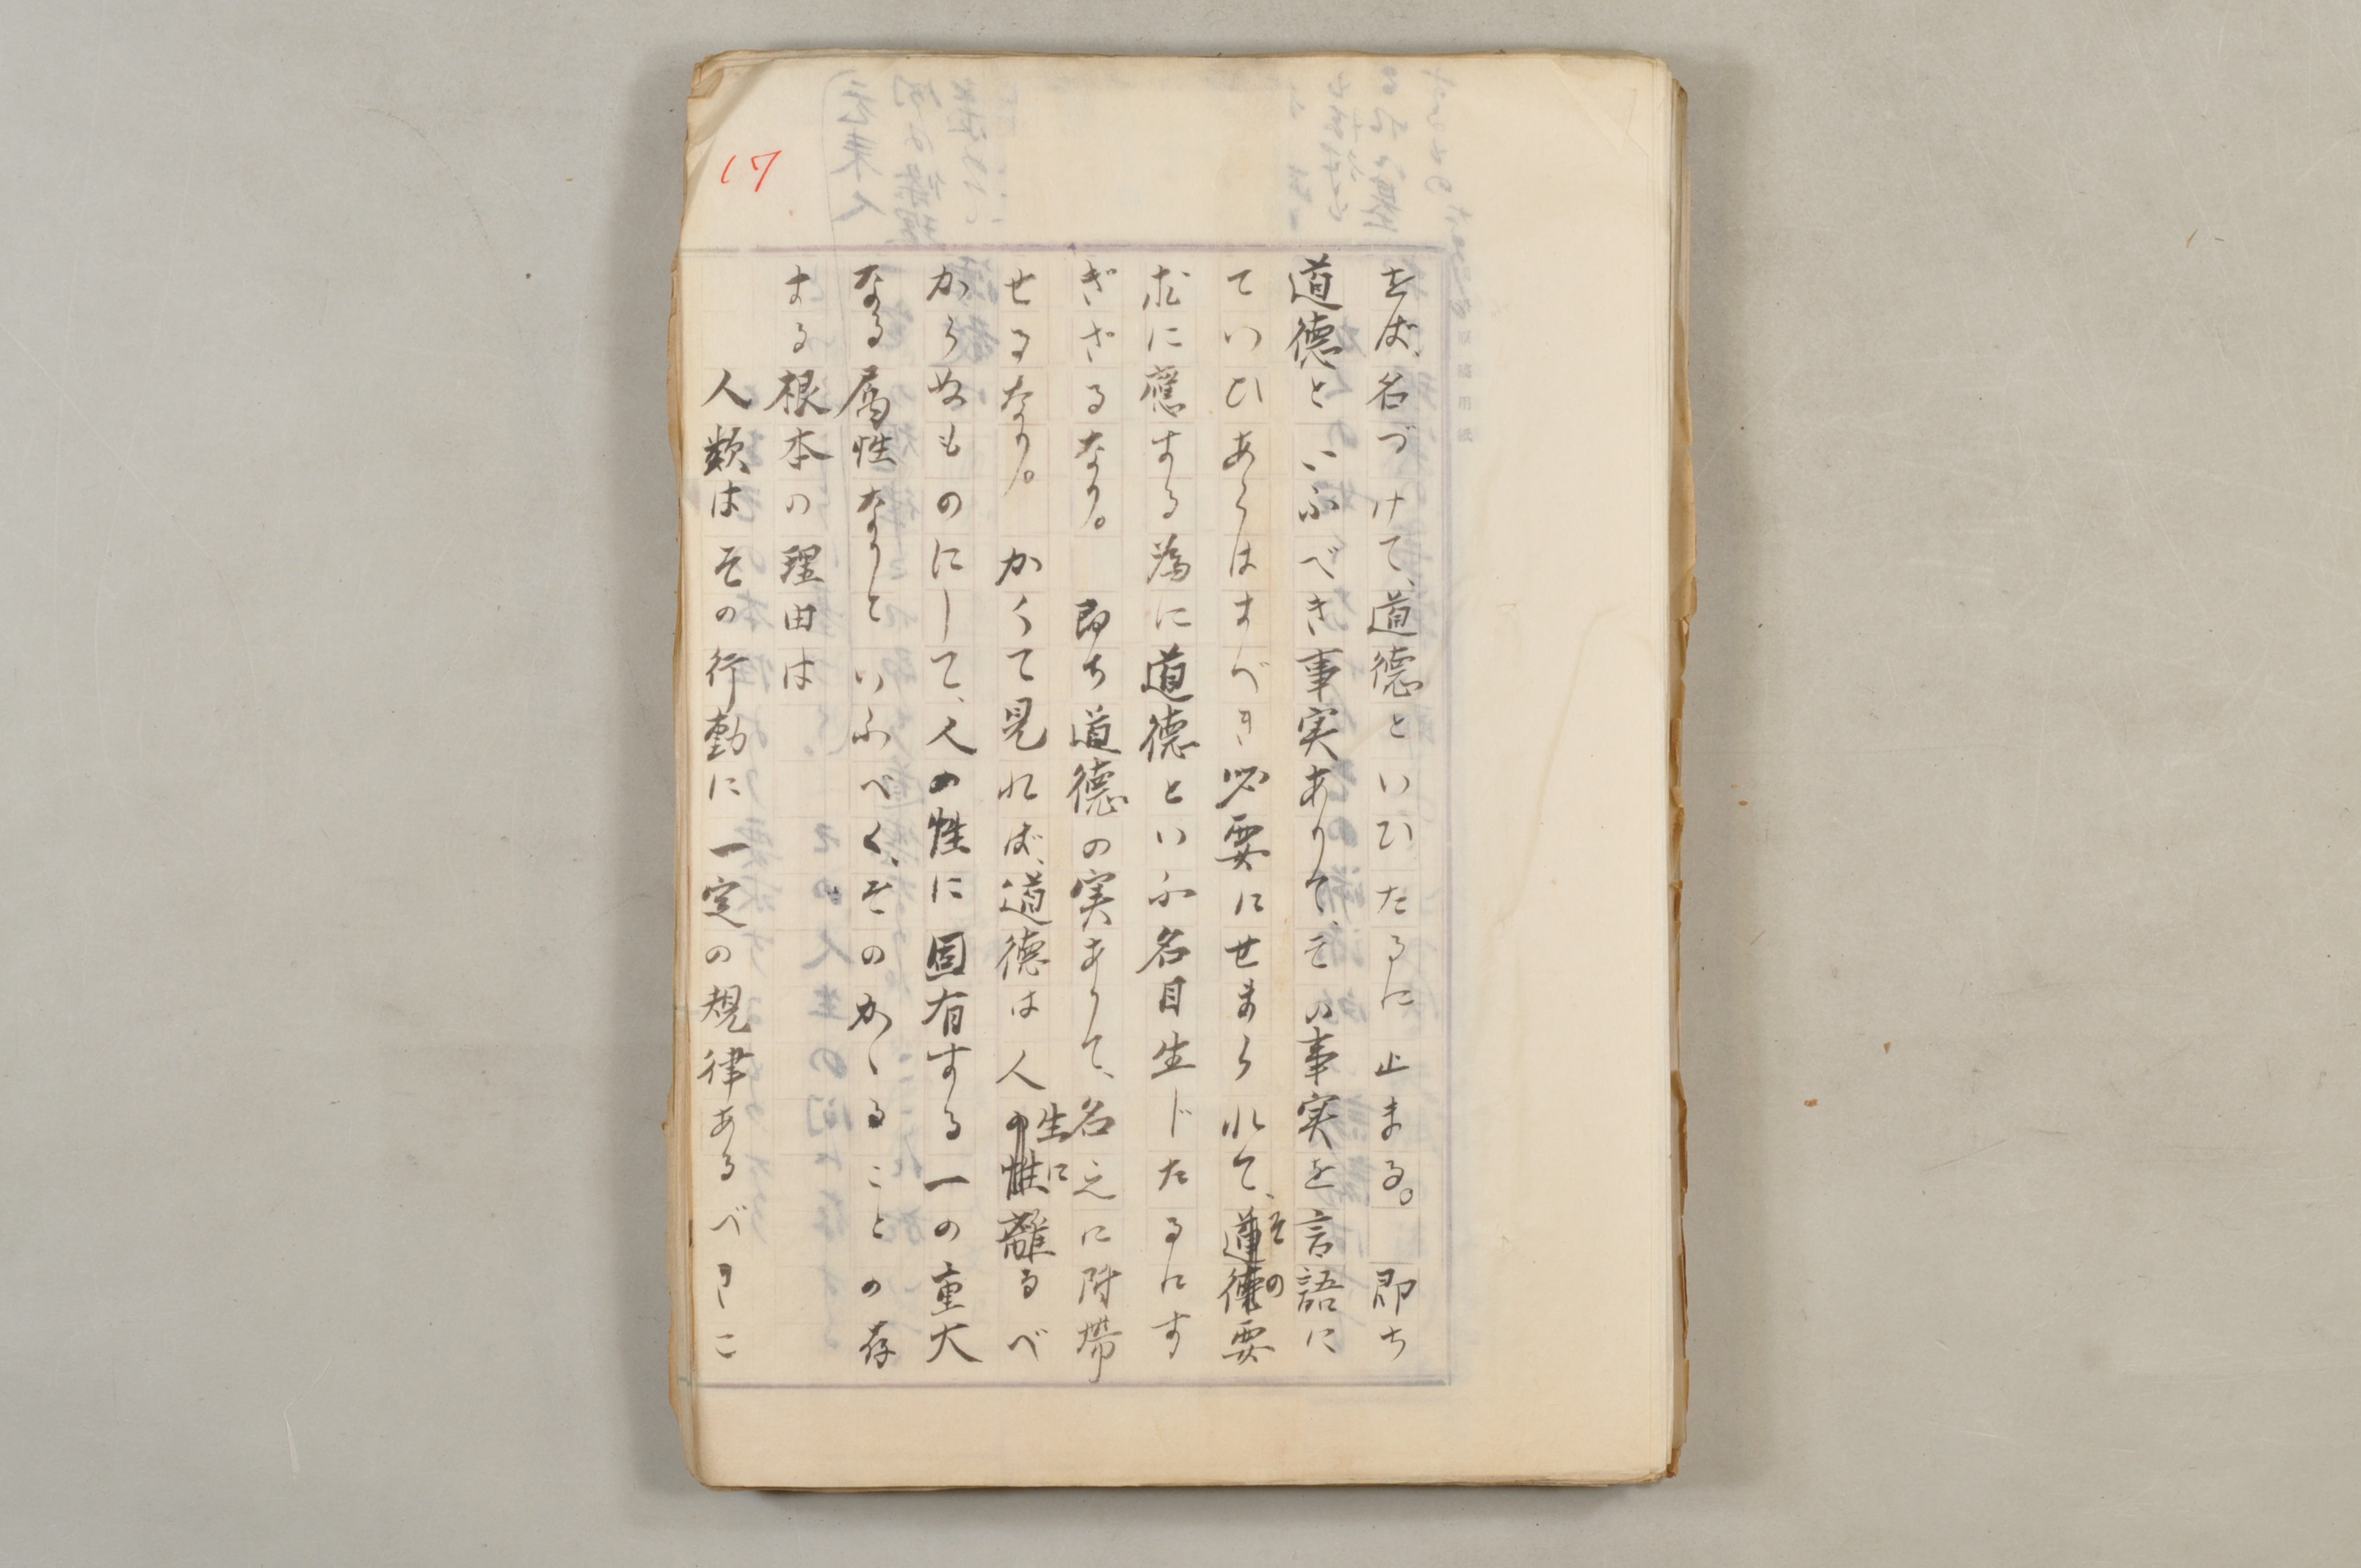 17
をば、名づけて、道徳といひたるに止まる。 即ち
道徳といふべき事実ありて、その事実を言語に
ていひあらはすべき必要にせまられて、その要
求に應ずる為に道徳といふ名目生じたるにす
ぎざるなり。 即ち道徳の実ありて、名之に附帯
せるなり。 かくて見れば、道徳は人生に離るべ
からぬものにして、人の性に固有する一の重大
なる属性なりといふべく、そのかゝることの存
する根本の理由は
人類はその行動に一定の規律あるべきこ